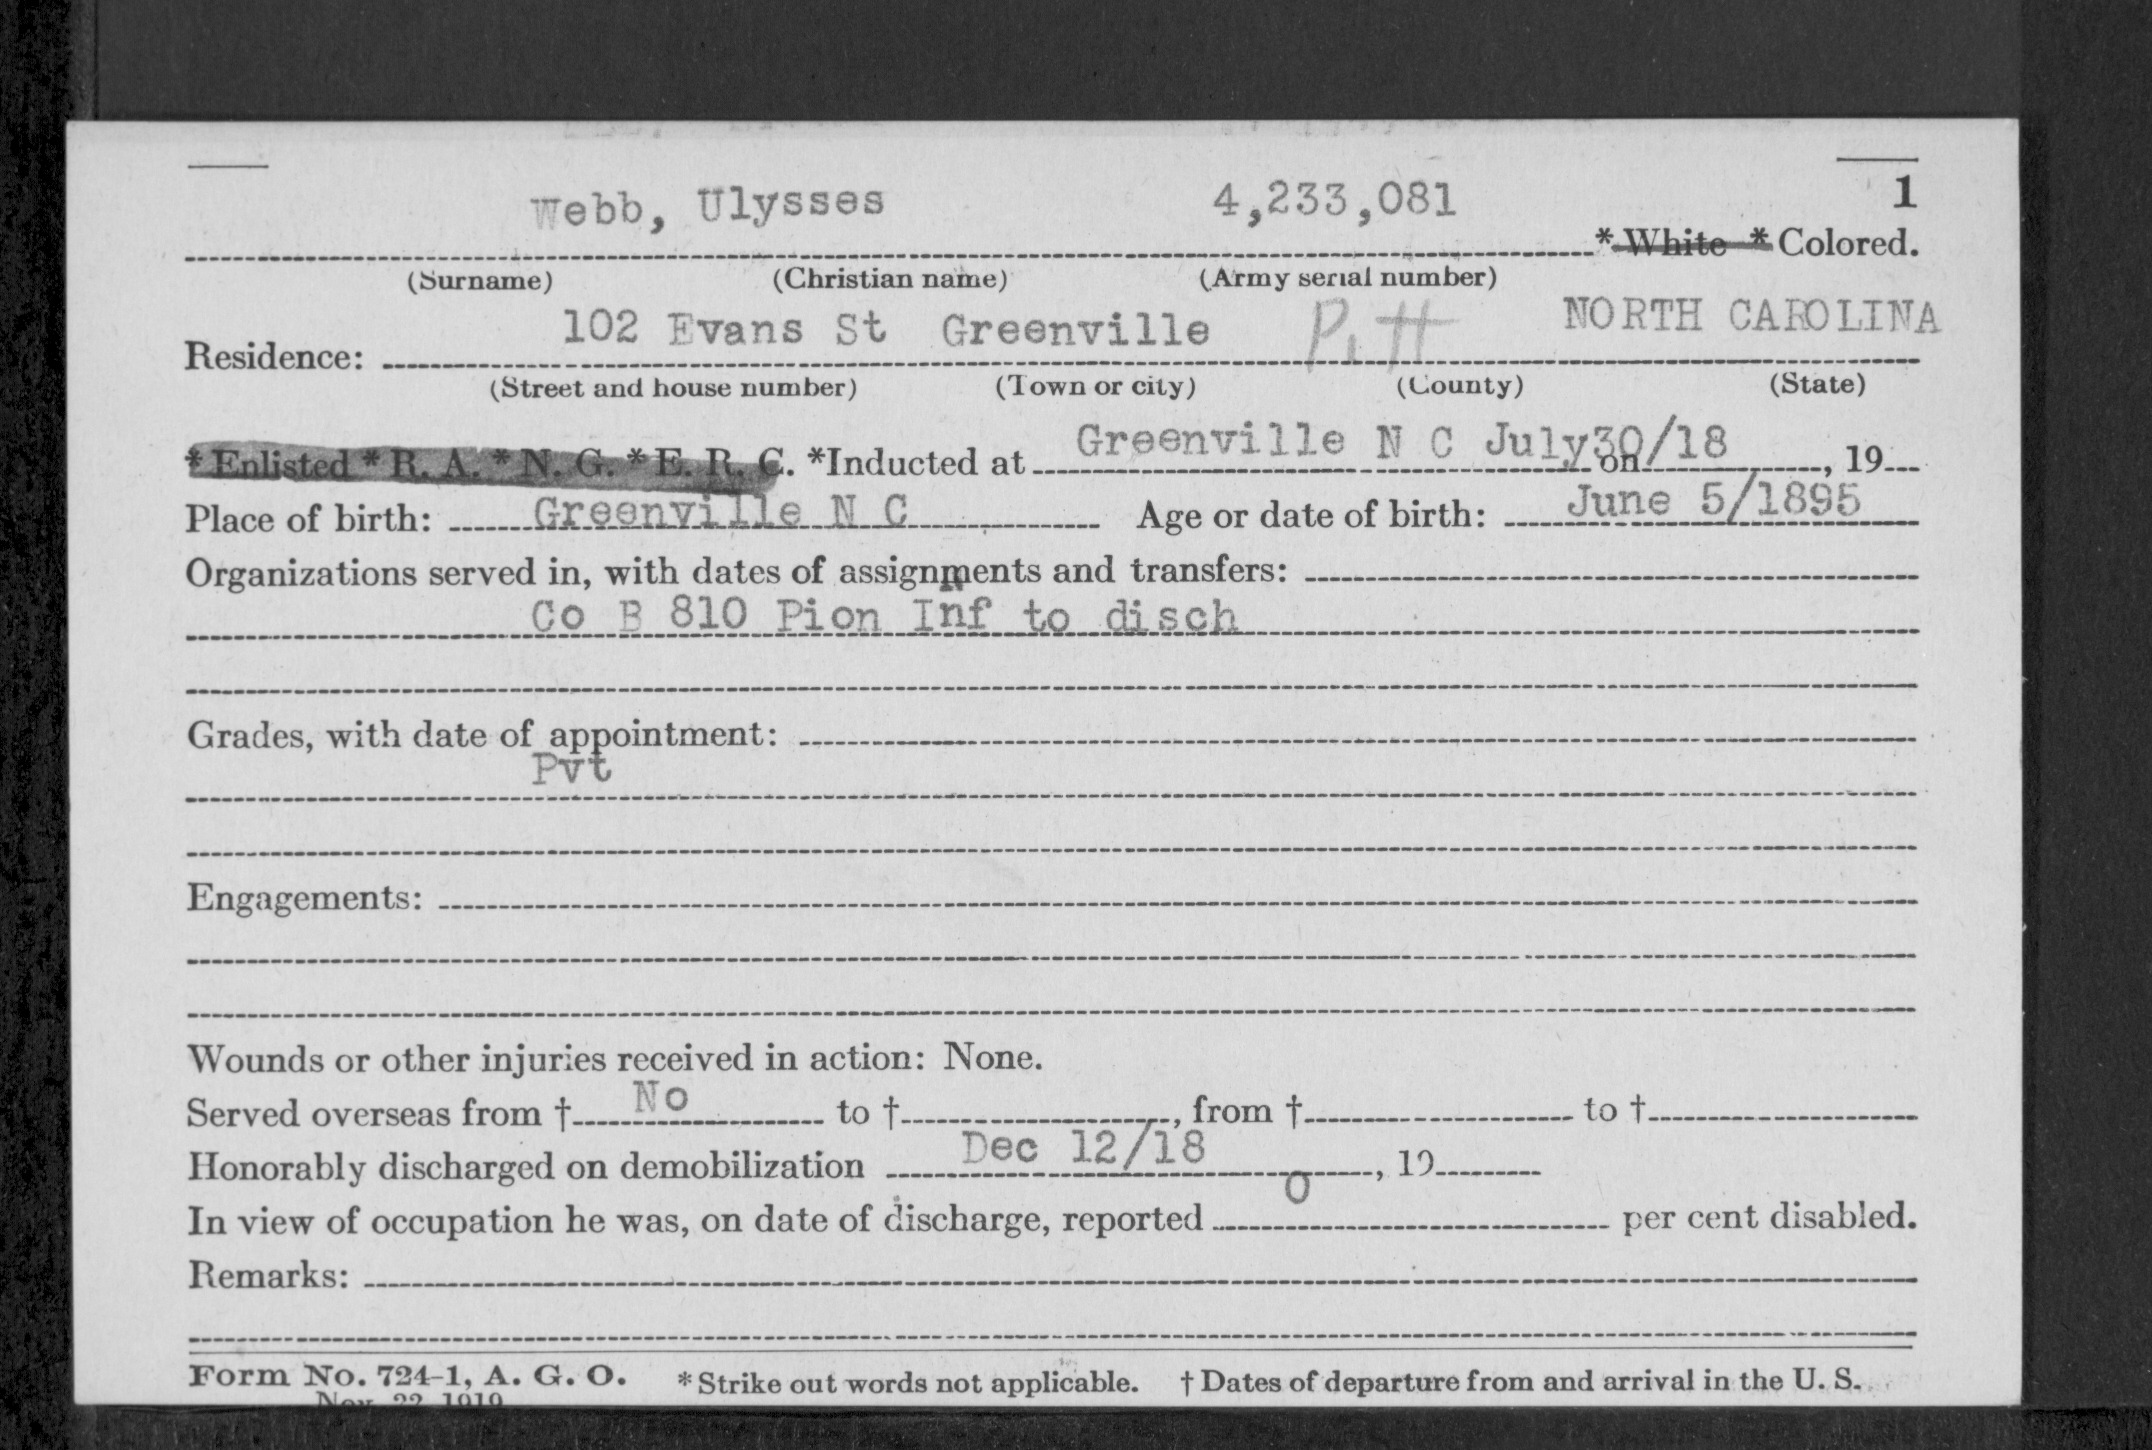 1
Webb, Ulysses 4,233,081 *White *Colored.
(Surname) (Christian name) (Army serial number)
Residence: 102 Evans St Greenville Pitt NORTH CAROLINA
(Street and house number) (Town or city) (County) (State)
*Enlisted *R. A. *N. G. *E. R. C. *Inducted at Greenville N C July30/18 on , 19
Place of birth: Greenville N C Age or date of birth: June 5/1895
Organizations served in, with dates of assignments and transfers:
Co B 810 Pion Inf to disch
Grades, with date of appointment:
Pvt
Engagements:
Wounds or other injuries received in action: None.
Served overseas from † No to † , from † to †
Honorably discharged on demobilization Dec 12/18 , 19
In view of occupation he was, on date of discharge, reported 0 per cent disabled.
Remarks:
Form No. 724-1, A. G. O. *Strike out words not applicable. † Dates of departure from and arrival in the U. S.
Nov. 22, 1919